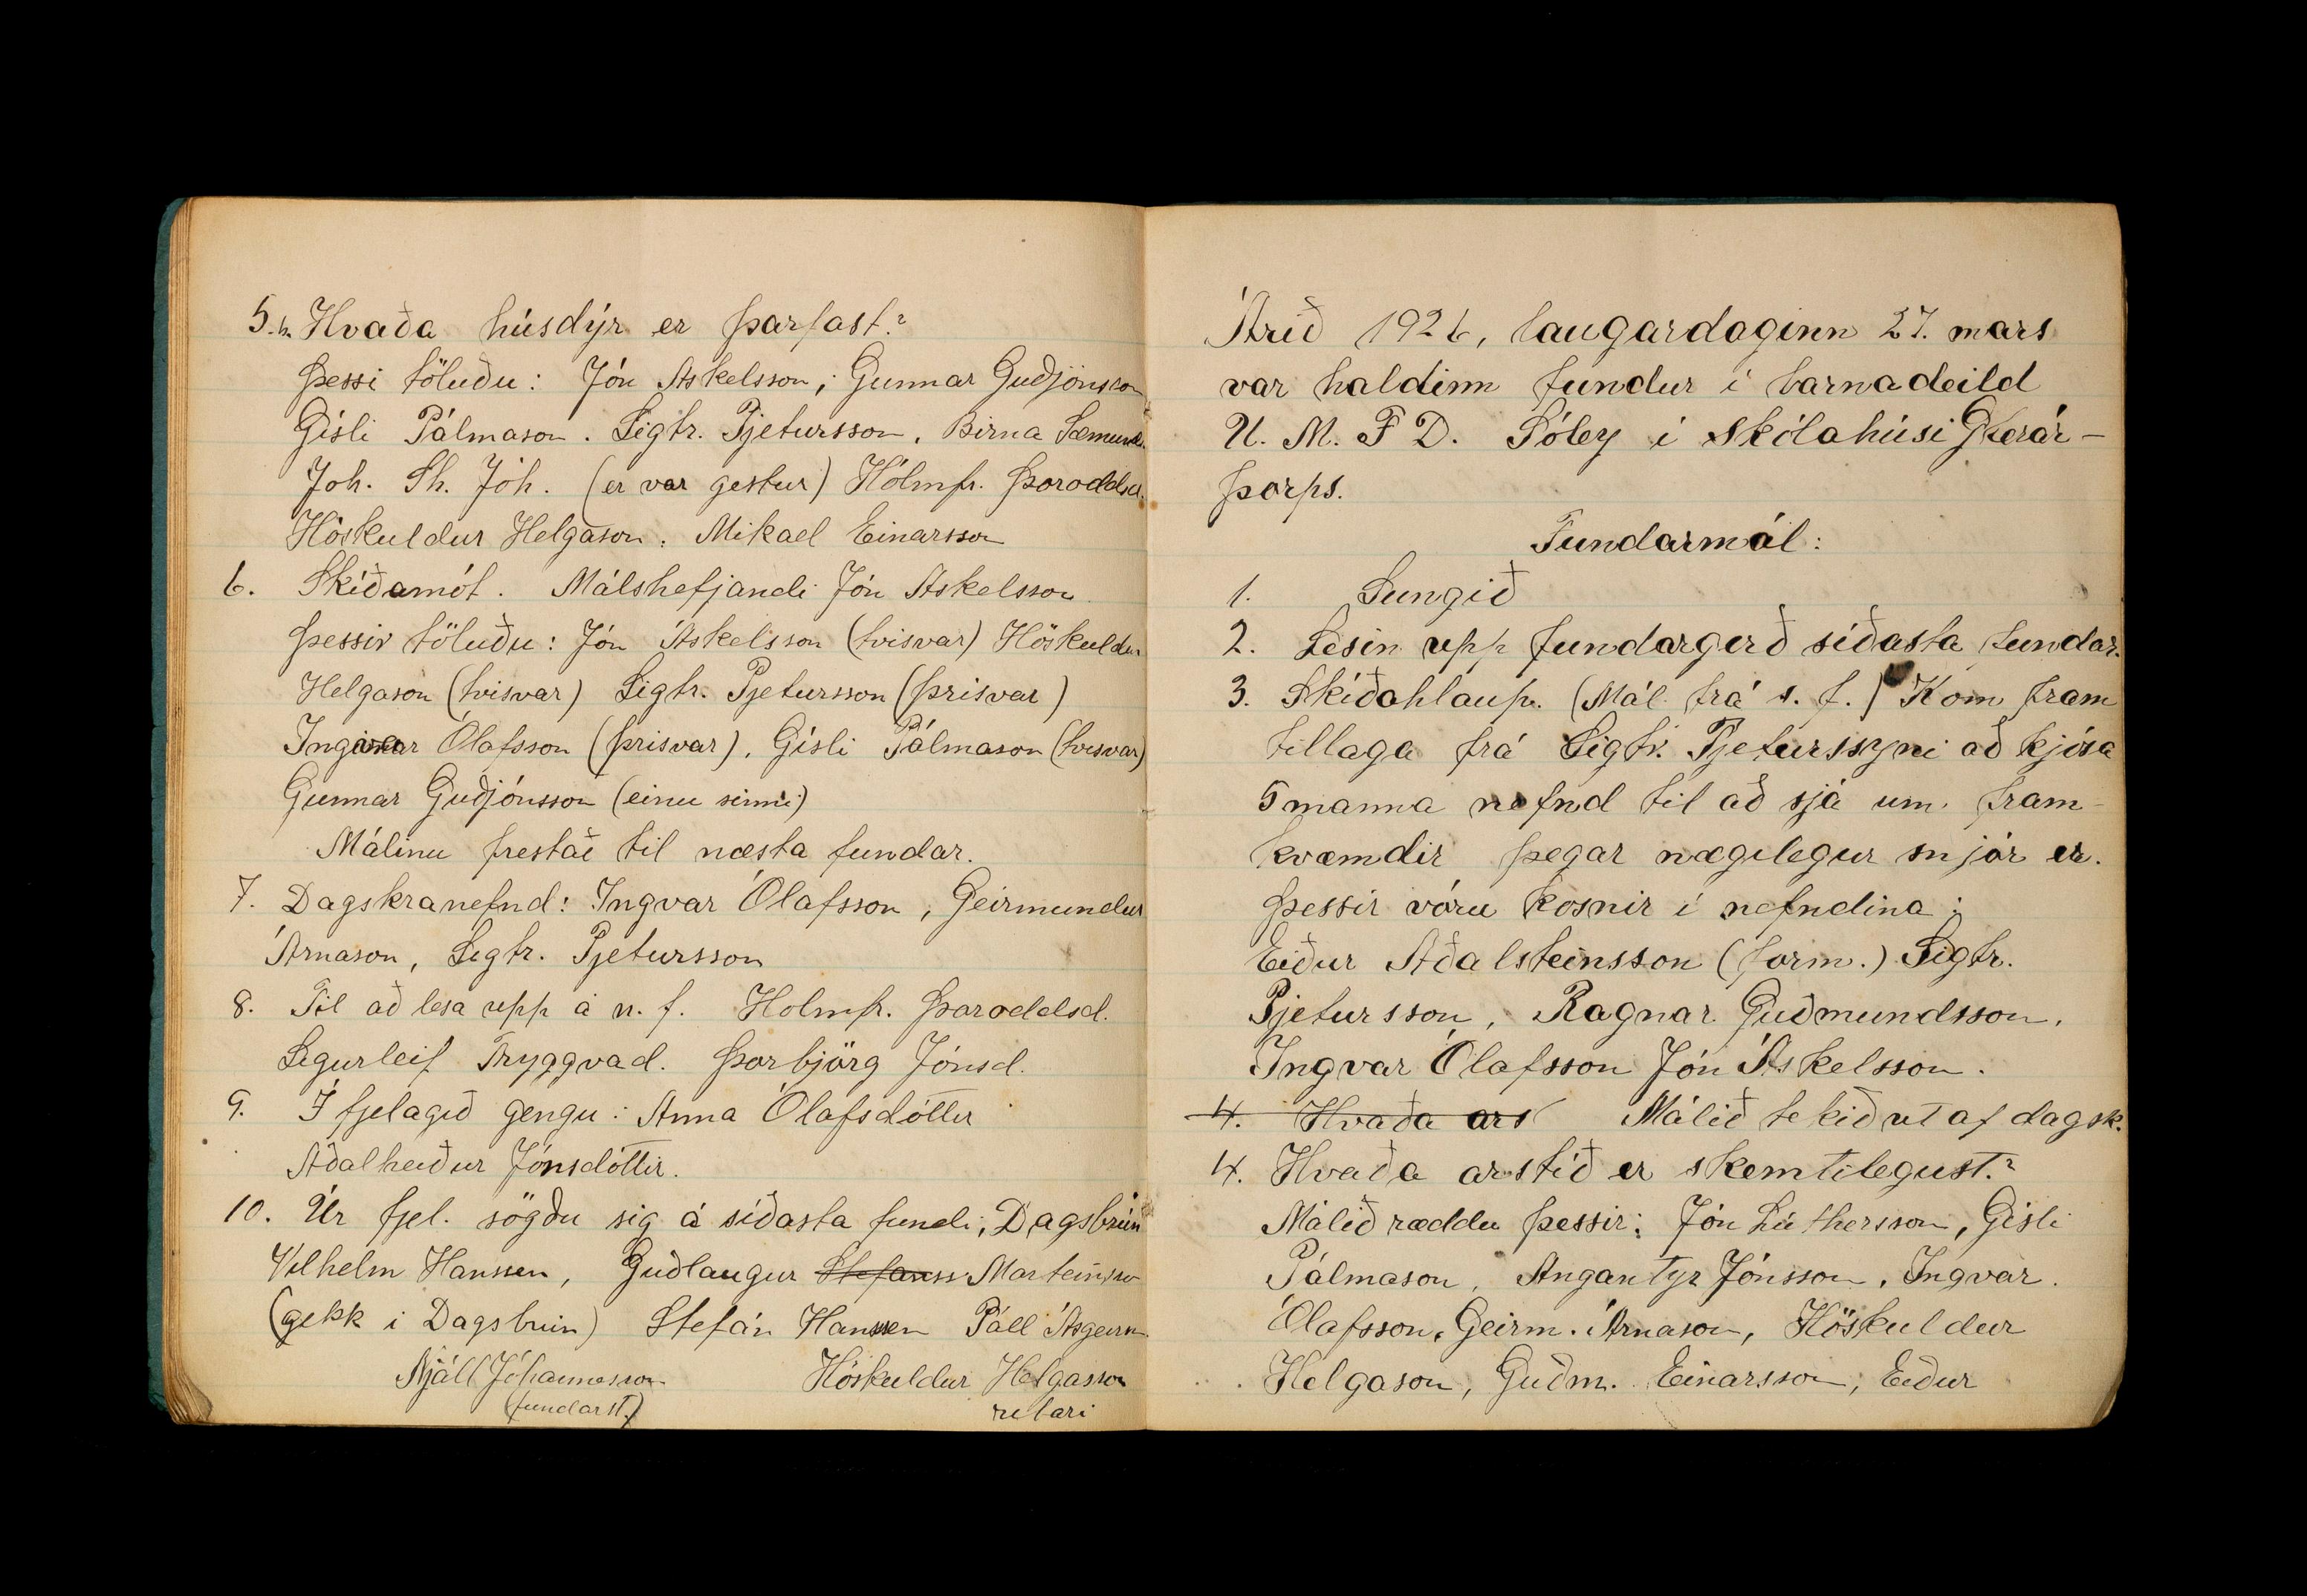 5. Hvaða húsdýr er þarfast?
Þessi töluðu: Jón Askelsson, Gunnar Guðjónsson
Gísli Pálmason. Sigtr. Pjetursson, Birna Sæmunds.
Joh. Sh. Jóh. (er var gestur) Hólmfr. Þoroddsd.
Höskuldur Helgason. Mikael Einarsson
6. Skíðamót. Málshefjandi Jón Askelsson
Þessir töluðu: Jón Áskelsson (tvisvar) Höskuldur
Helgason (tvisvar) Sigtr. Pjetursson (þrisvar)
Ingvar Ólafsson (þrisvar), Gísli Pálmason (tvisvar)
Gunnar Guðjónsson (einu sinni)
Málinu frestað til næsta fundar.
7. Dagskranefnd: Ingvar Ólafsson, Geirmundur
Árnason, Sigtr. Pjetursson
8. Til að lesa upp á n. f. Holmfr. Þaroddsd.
Sigurleif Tryggvad. Þorbjörg Jónsd.
9. Í fjelagið gengu: Anna Ólafsdóttir
Aðalheiður Jónsdóttir.
10. Úr fjel. sögðu sig á síðasta fundi, Dagsbrún
Vilhelm Hanssen, Guðlaugur Stefanss Marteinsso
(gekk i Dagsbrún) Stefán Hanssen Páll Ásgeirs
Njáll Jóhannesson Höskuldur Helgason
(fundarst.) ritari
Árið 1926, laugardaginn 27. mars
var haldinn fundur í barnadeild
U. M. F D. Sóley í skólahúsi Glerár-
þorps.
Fundarmál:
1. Sungið
2. Lesin upp fundargerð síðasta fundar.
3. Skíðahlaup. (Mál frá s. f.) Kom fram
tillaga frá Sigtr. Pjeturssyni að kjósa
5 manna nefnd til að sjá um fram-
kvæmdir þegar nægilegur snjór er.
Þessir vóru kosnir í nefndina:
Eiður Aðalsteinsson (form.) Sigtr.
Pjetursson, Ragnar Guðmundsson,
Ingvar Ólafsson Jón Áskelsson.
4. Hvaða ars Málið tekið út af dagsk.
4. Hvaða arstíð er skemtilegust?
Málið ræddu þessir: Jón Lúthersson, Gísli
Pálmason, Angantýr Jónsson, Ingvar
Ólafsson, Geirm. Árnason, Höskuldur
Helgason, Guðm. Einarsson, Eiður